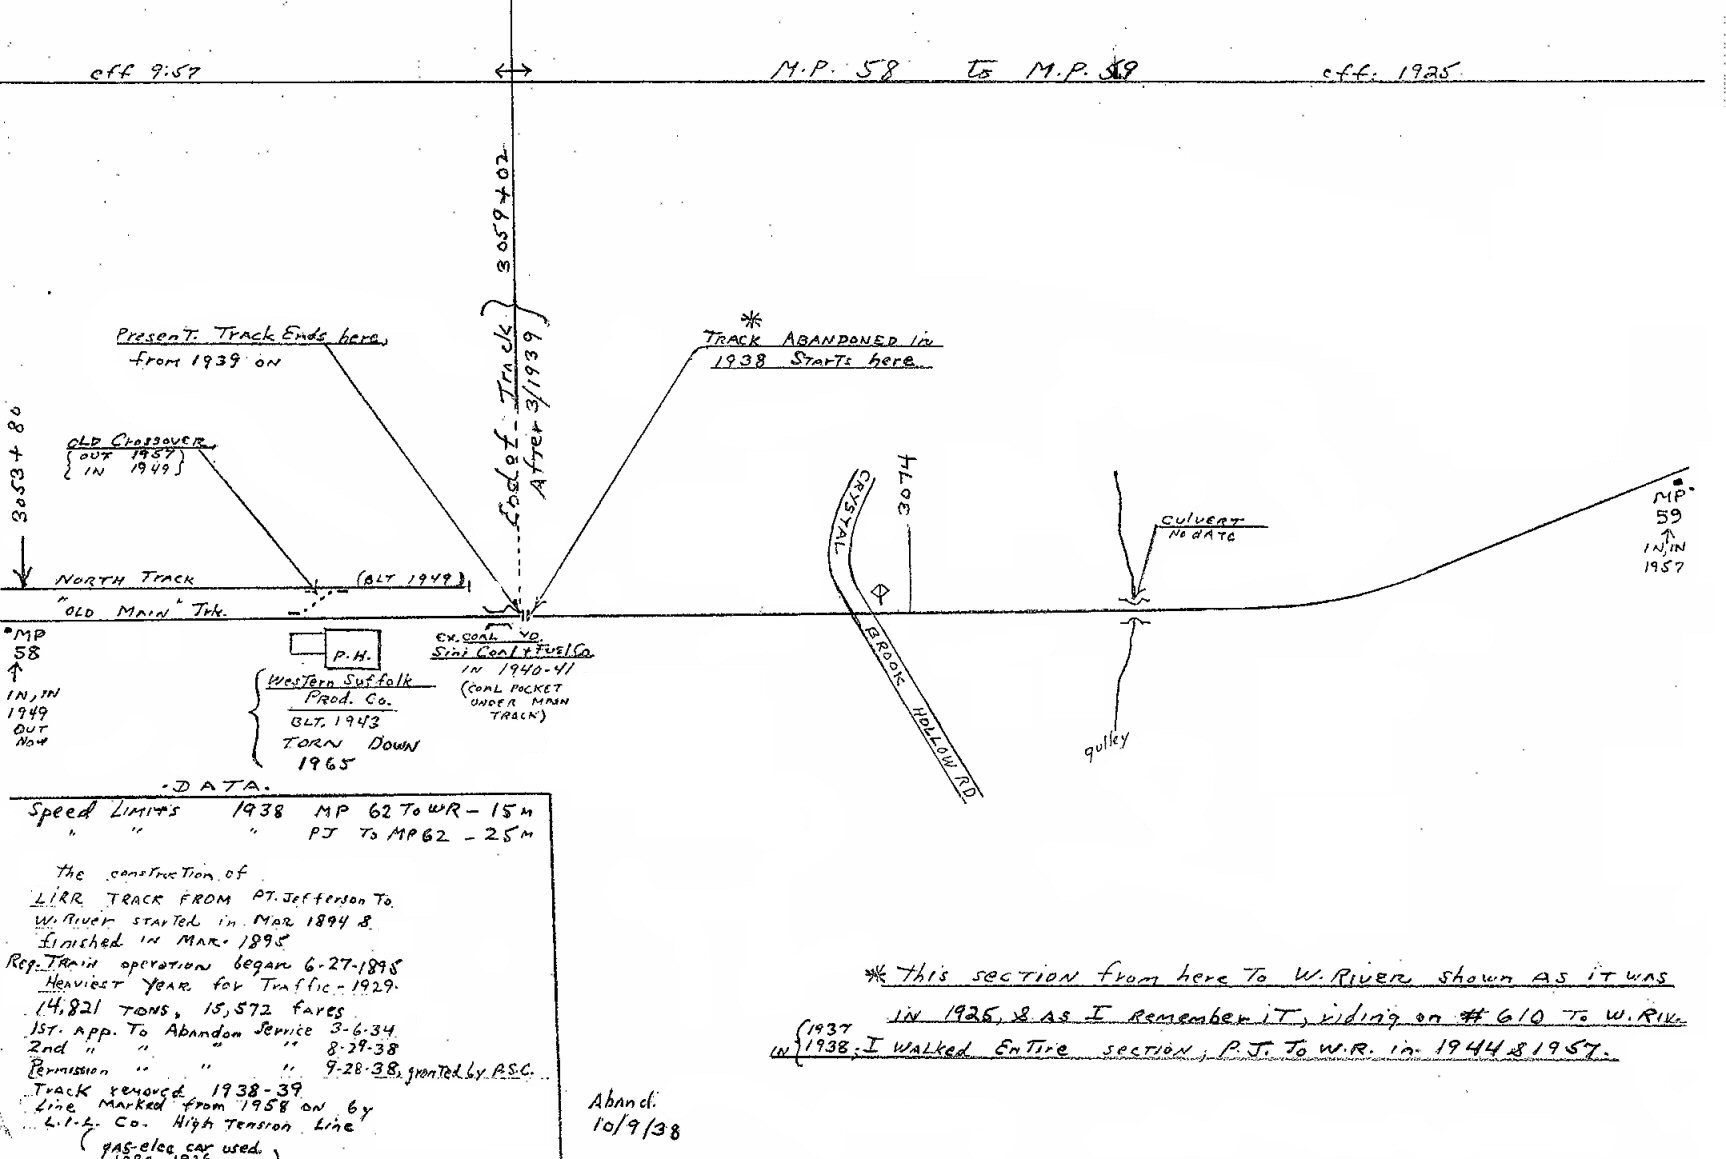 eff 9:57
M.P. 58 to M.P. 59
eff: 1925
3059+02
End of Track
After 3/1939
Present. Track Ends here,
from 1939 on
*
TRACK ABANDONED in
1938 STARTS here
3053+80
OLD Crossover
OUT 1957
IN 1949
CRYSTAL BROOK HOLLOW RD
3074
CULVERT
No DATE
MP
59
IN, IN
1957
NORTH TRACK (BLT 1949)
"OLD MAIN" Trk.
MP
58
IN, IN
1949
OUT
Now
P.H.
Western Suffolk
Prod. Co.
BLT. 1943
TORN DOWN
1965
Ex. COAL YD.
Sini Coal + Fuel Co
IN 1940-41
(COAL POCKET
UNDER MAIN
TRACK)
gulley
.DATA.
Speed LIMITS 1938 MP 62 To WR - 15 M
" " " PJ To MP 62 - 25 M
the construction of
LIRR TRACK FROM PT. Jefferson To
W. River STARTED in MAR 1894 &
finished IN MAR. 1895
Reg. Train operation began 6-27-1895
Heaviest Year for Traffic - 1929.
14,821 TONS, 15,572 fares
1ST. App. To Abandon Service 3-6-34
2nd " " " " 8-29-38
Permission " " " 9-28-38, granted by P.S.C.
Track removed 1938-39
Line Marked from 1958 ON by
L.I.L. Co. High Tension Line
(gas-elec car used
Aband.
10/9/38
* This section from here To W. RIVER shown AS iT was
IN 1925, & AS I Remember iT, riding on # 610 To W. RIV.
IN {1937
1938. I WALKED ENTire section, P.J. To W.R. in 1944 & 1957.